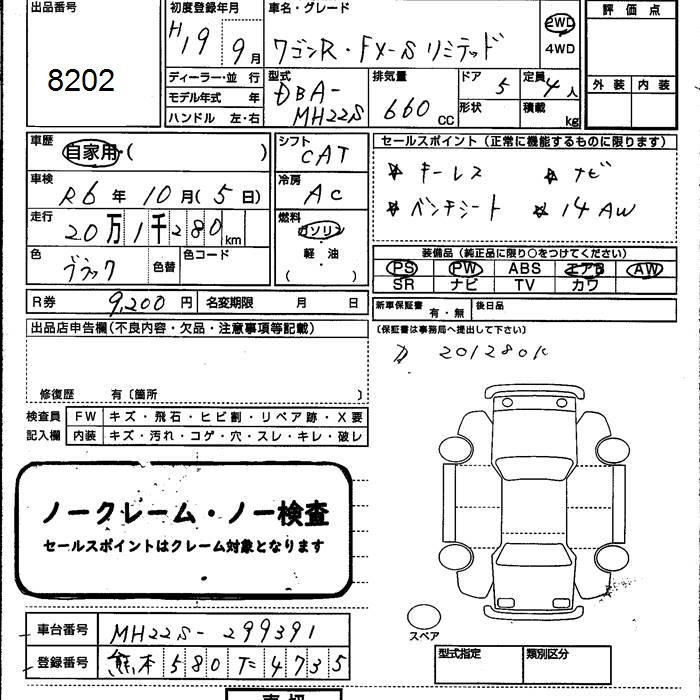 出品番号
8202
初度登録年月
H19 9月
車名・グレード
ワゴンR・FX-S リミテッド
2WD
4WD
評価点
外装 内装
ディーラー・並 行
モデル年式 年
ハンドル 左・右
型式
DBA-
MH22S
排気量
660 CC
ドア
5
形状
定員
4人
積載
kg
車歴
自家用 ( )
車検
R6年 10月(5日)
走行
20万1千280km
色
ブラック
色替
色コード
シフト
CAT
冷房
AC
燃料
ガソリン
軽・油
( )
セールスポイント(正常に機能するものに限ります)
☆ キーレス ☆ ナビ
☆ ベンチシート ☆ 14AW
装備品(純正品に限り○をつけてください)
PS PW ABS エアB AW
SR ナビ TV カワ
R券 9,200円 名変期限 月 日
新車保証書 有・無 後日品
(保証書は事務局へ提出して下さい)
出品店申告欄(不良内容・欠品・注意事項等記載)
201280K
修復歴 有〔箇所 〕
検査員
記入欄
FW キズ・飛石・ヒビ割・リペア跡・X要
内装 キズ・汚れ・コゲ・穴・スレ・キレ・破レ
ノークレーム・ノー検査
セールスポイントはクレーム対象となります
スペア
車台番号 MH22S-299391
登録番号 熊本 580 て 4735
型式指定 類別区分